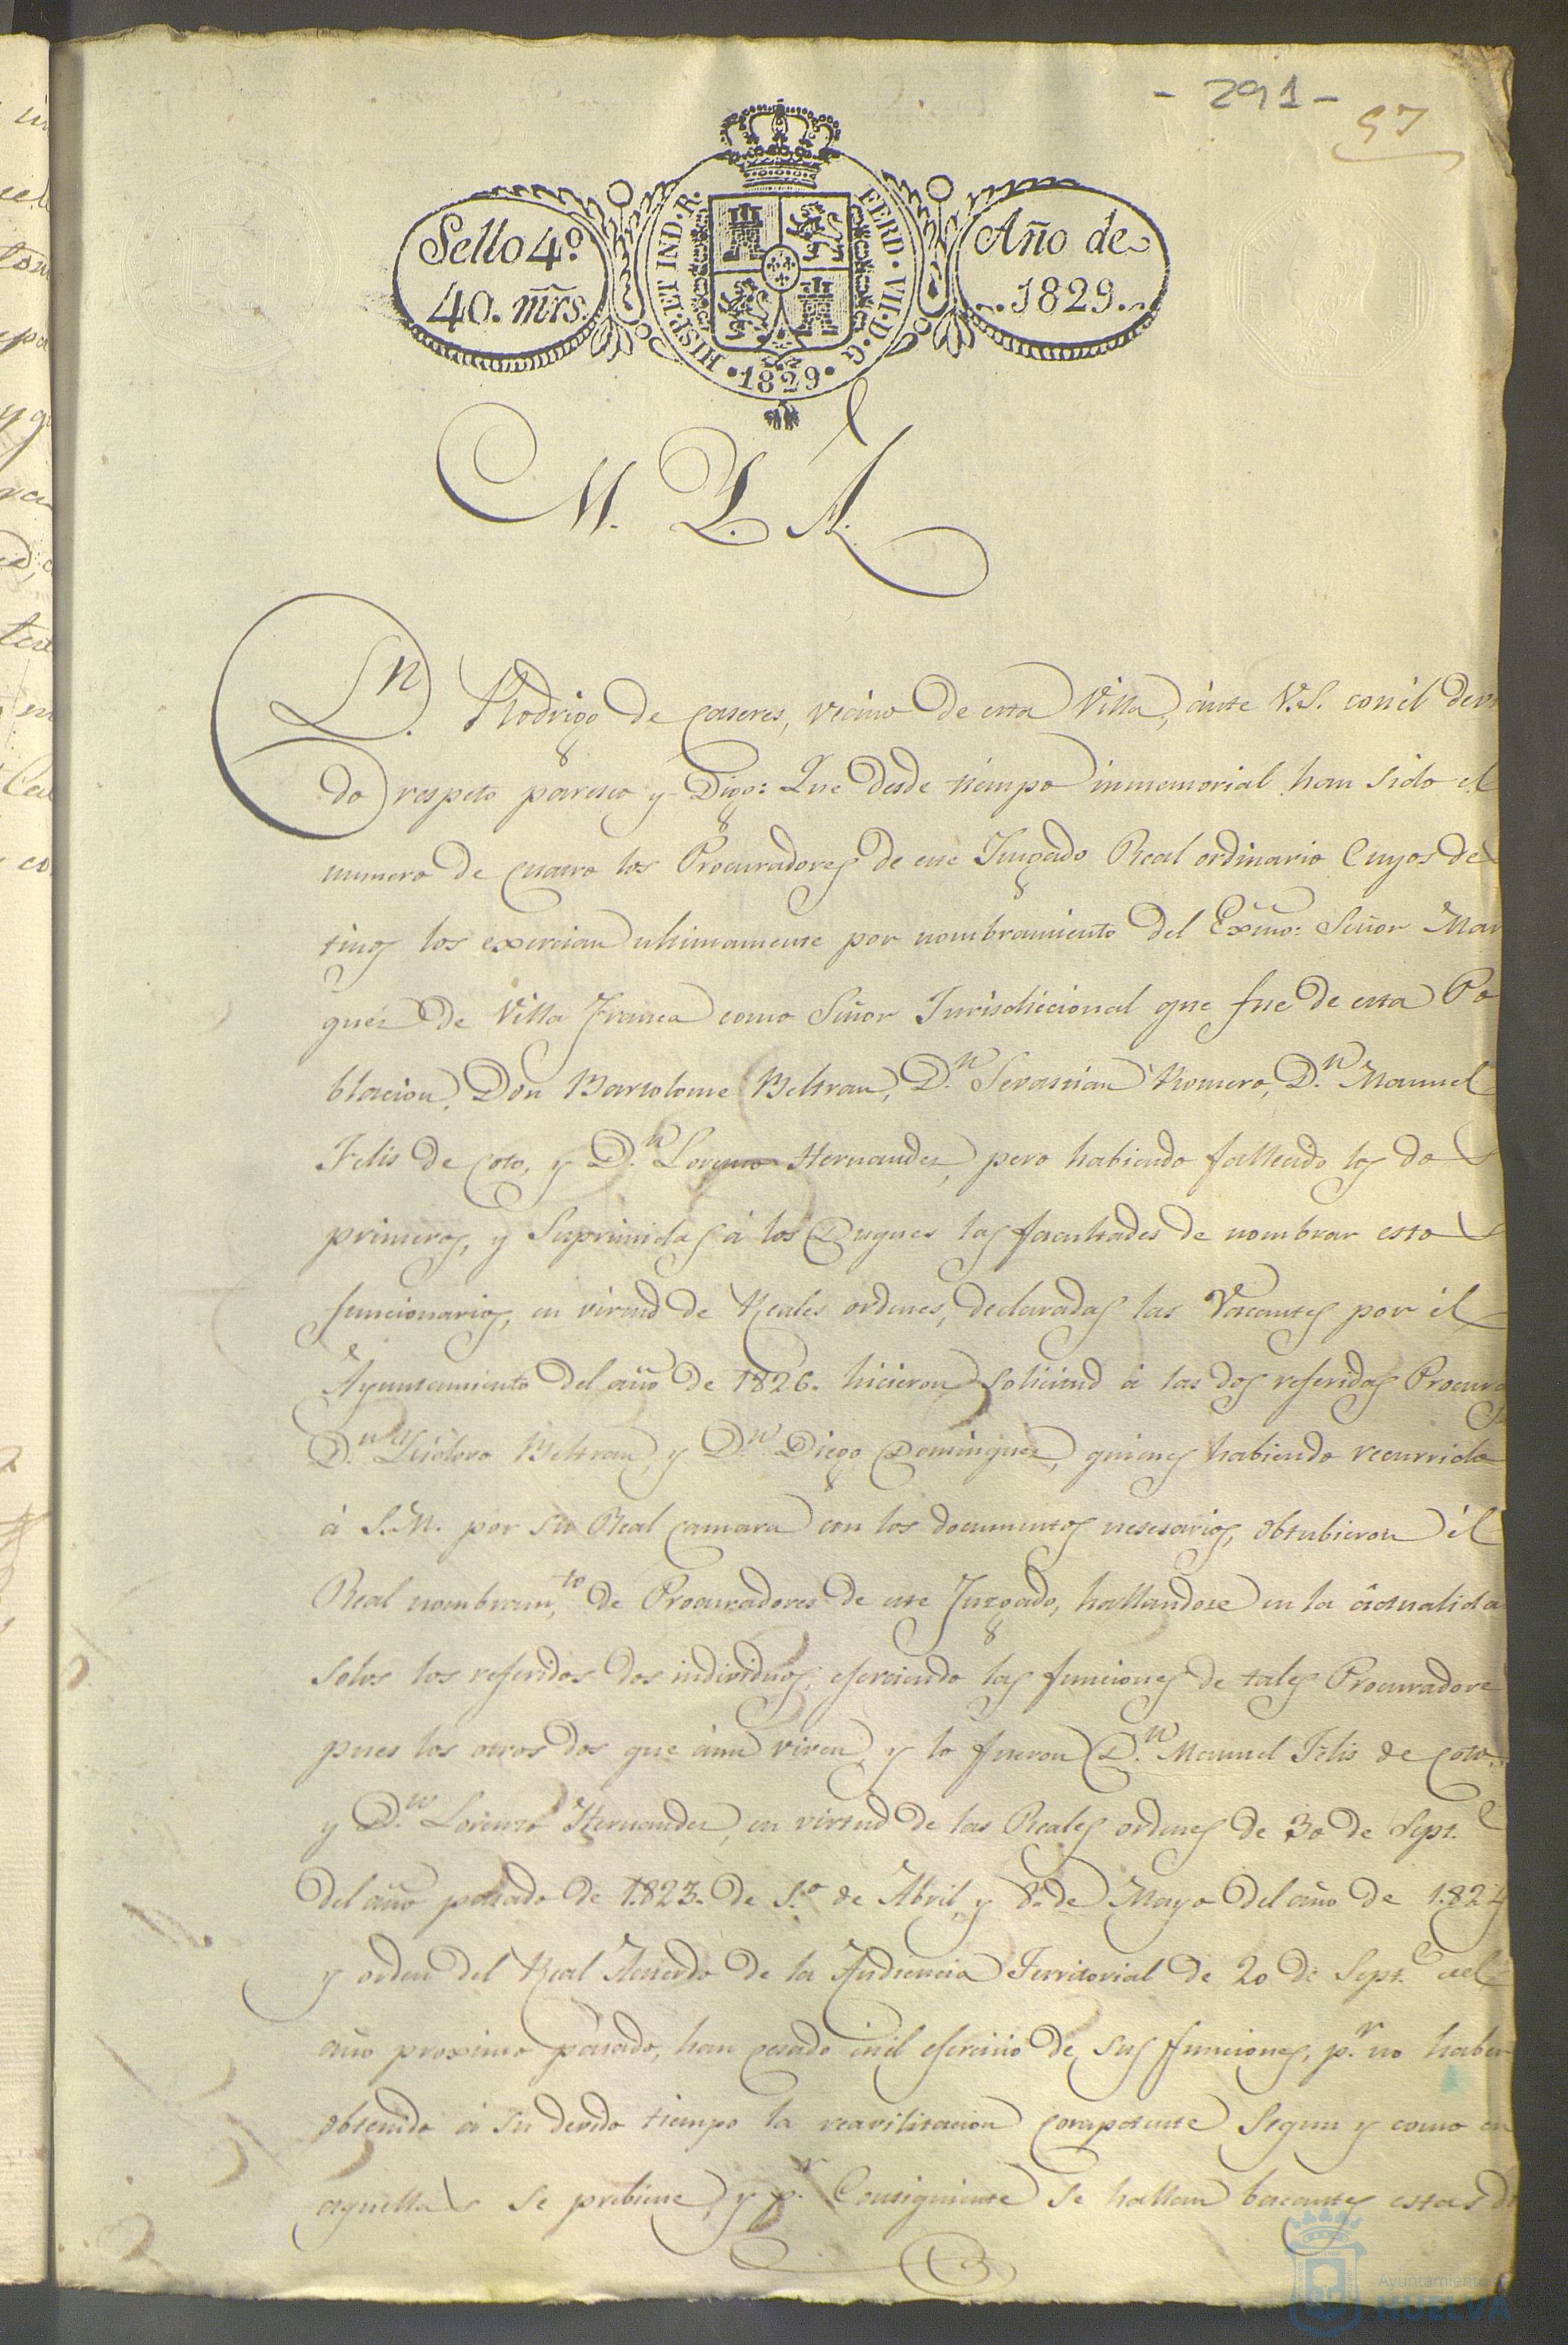 - 291 -
57
Sello 4º
40. mrs.
HISP. ET IND. R.
FERD. VII. D. G.
• 1829 •
Año de
1829.
M. Y. A.
Dn. Rodrigo de Caseres, vecino de esta Villa, ánte V.S. con él devi
do respeto paresco y Digo: Que desde tiempo inmemorial han sido el
numero de cuatro los Procuradores de este Juzgado Real ordinario Cuyos des
tinos los exercian ultimamente por nombramiento del Exmo: Señor Mar
ques de Villa Franca como Señor Jurisdiccional que fue de esta Po
blacion, Don Bartolome Beltran, D.n Sevastian Romero, D.n Manuel
Felis de Coto, y D.n Lorenzo Hernandez, pero habiendo fallecido los dos
primeros, y Suprimidas á los Duques las facultades de nombrar estos
funcionarios, en virtud de Reales ordenes, declaradas las Vacantes por él
Ayuntamiento del año de 1826. hicieron solicitud á las dos referidas Procura
D.n Ysidoro Beltran, y D.n Diego Dominguez, quienes habiendo recurrido
á S.M. por su Real Camara con los documentos nesesarios, obtubieron él
Real nombram.to de Procuradores de este Juzgado, hallandose en la áctualida
solos los referidos dos individuos, eserciendo las funciones de tales Procuradore
pues los otros dos que áun viven, y lo fueron D.n Manuel Felis de Coto,
y D.n Lorenzo Hernandez, en virtud de las Reales ordenes de 30 de Sept.e
del año pasado de 1.823. de 1.º de Abril, y 8. de Mayo del año de 1.824
y orden del Real Acuerdo de la Audiencia Territorial de 20 de Sept.e del
año proximo pasado, han cesado en él esercicio de sus funciones, p.r no haber
obtenido á su devido tiempo la reavilitacion competente Segun y como en
aquellas se prebiene, y p.r Consiguiente se hallan bacantes estas do
Ayuntamiento
HUELVA